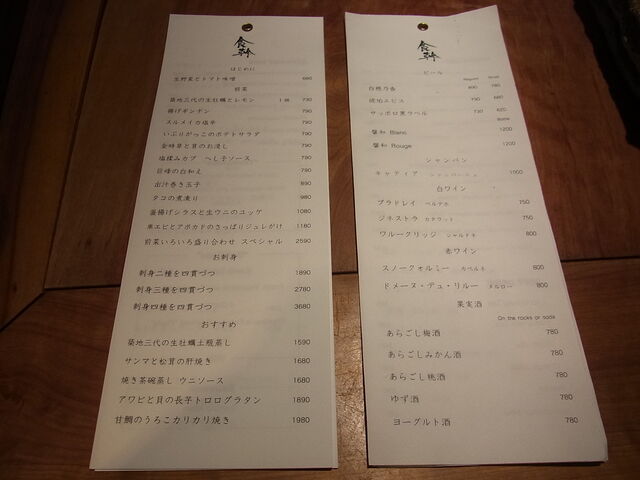 食幹
はじめに
生野菜とトマト味噌 680
前菜
築地三代の生牡蠣とレモン 1個 730
揚げギンナン 790
スルメイカ塩辛 790
いぶりがっこのポテトサラダ 790
金時草と貝のお浸し 790
塩揉みカブ へしこソース 790
巨峰の白和え 790
出汁巻き玉子 890
タコの煮凍り 980
釜揚げシラスと生ウニのユッケ 1080
車エビとアボカドのさっぱりジュレがけ 1180
前菜いろいろ盛り合わせ スペシャル 2590
お刺身
刺身二種を四貫づつ 1890
刺身三種を四貫づつ 2780
刺身四種を四貫づつ 3680
おすすめ
築地三代の生牡蠣土瓶蒸し 1590
サンマと松茸の肝焼き 1680
焼き茶碗蒸し ウニソース 1680
アワビと貝の長芋トロログラタン 1890
甘鯛のうろこカリカリ焼き 1980
食幹
ビール
白穂乃香 890 780
琥珀エビス 790 680
サッポロ黒ラベル 730 620
馨和 Blanc 1200
馨和 Rouge 1200
シャンパン
キャティア 1000
白ワイン
プラドレイ ベルデホ 750
ジネストラ カタラット 750
ワルーグリッジ シャルドネ 800
赤ワイン
スノークォルミー カベルネ 800
ドメーヌ・デュ・リルー メルロー 800
果実酒
On the rocks or soda
あらごし梅酒 780
あらごしみかん酒 780
あらごし桃酒 780
ゆず酒 780
ヨーグルト酒 780